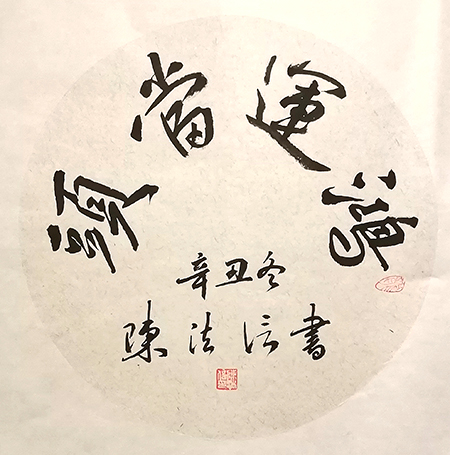 鴻運當頭
辛丑冬
陳法信書